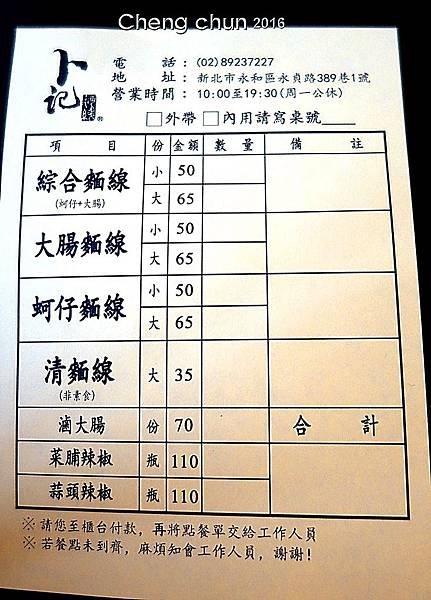 Cheng chun 2016
卜記
®
電話:(02)89237227
地址:新北市永和區永貞路389巷1號
營業時間:10:00至19:30(周一公休)
□外帶 □內用請寫桌號____
項目 份 金額 數量 備註
綜合麵線 小 50
(蚵仔+大腸) 大 65
大腸麵線 小 50
大 65
蚵仔麵線 小 50
大 65
清麵線 大 35
(非素食)
滷大腸 份 70 合計
菜脯辣椒 瓶 110
蒜頭辣椒 瓶 110
※請您至櫃台付款,再將點餐單交給工作人員
※若餐點未到齊,麻煩知會工作人員,謝謝!